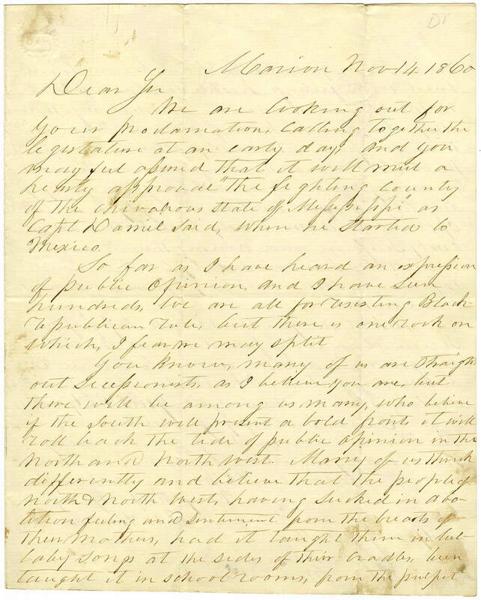 Marion Nov 14 1860
Dear Sir
We are looking out for
your proclamation, calling together the
legislature at an early day, and you
may feel assured that it will meet a
hearty approval "the fighting county
of the chivalrous state of Mississippi" as
Capt Daniel said, when he started to
Mexico.
So far as I have heard an expression
of public opinion, and I have seen
hundreds, we are all for resisting Black
Republican rule, but there is one rock on
which, I fear we may split
You know, many of us are straight
out Secessionists, as I believe you are, but
there will be among us many, who believe
if the South will present a bold front it will
roll back the tide of public opinion in the
North and North West. Many of us think
differently and believe that the people of
North & North West, having sucked in abo-
lition feeling and sentiment from the breasts of
their Mothers, had it taught them in
baby songs at the sides of their cradles, been
taught it in school rooms, from the pulpit